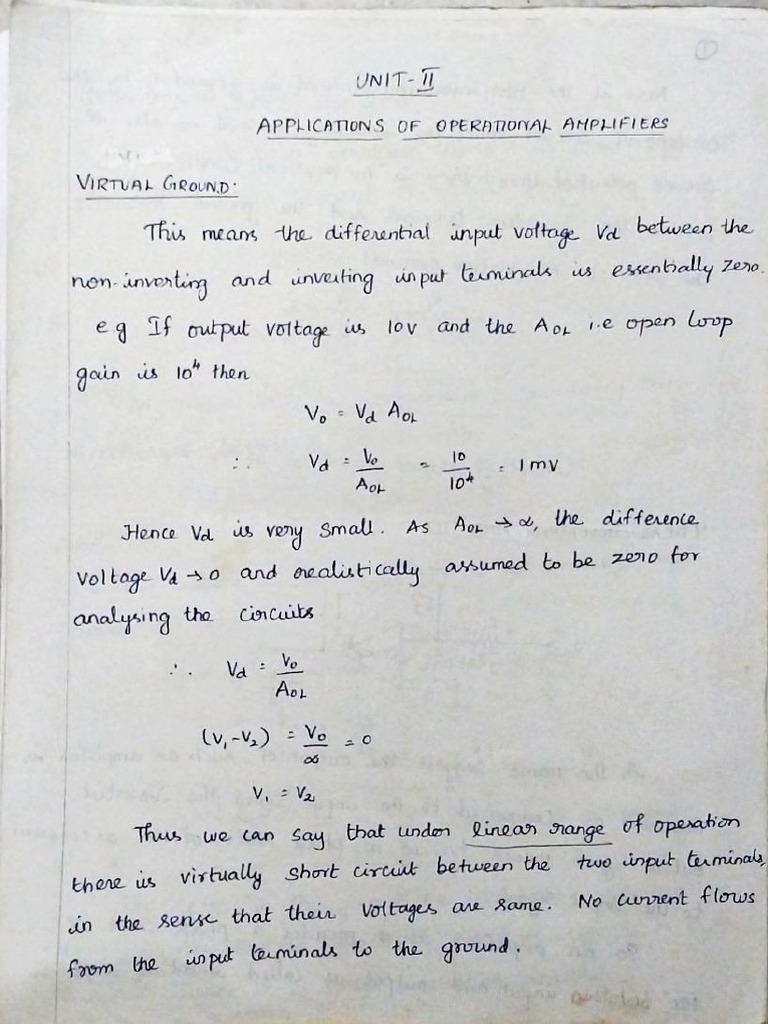 ①
UNIT-II
APPLICATIONS OF OPERATIONAL AMPLIFIERS
VIRTUAL GROUND:
This means the differential input voltage Vd between the
non-inverting and inverting input terminals is essentially zero.
eg If output voltage is 10V and the AOL i.e open loop
gain is 10⁴ then
Vo = Vd AOL
∴ Vd = Vo/AOL = 10/10⁴ = 1mV
Hence Vd is very small. As AOL → ∞, the difference
voltage Vd → 0 and realistically assumed to be zero for
analysing the circuits
∴ Vd = Vo/AOL
(V₁-V₂) = Vo/∞ = 0
V₁ = V₂
Thus we can say that under linear range of operation
there is virtually short circuit between the two input terminals,
in the sense that their voltages are same. No current flows
from the input terminals to the ground.